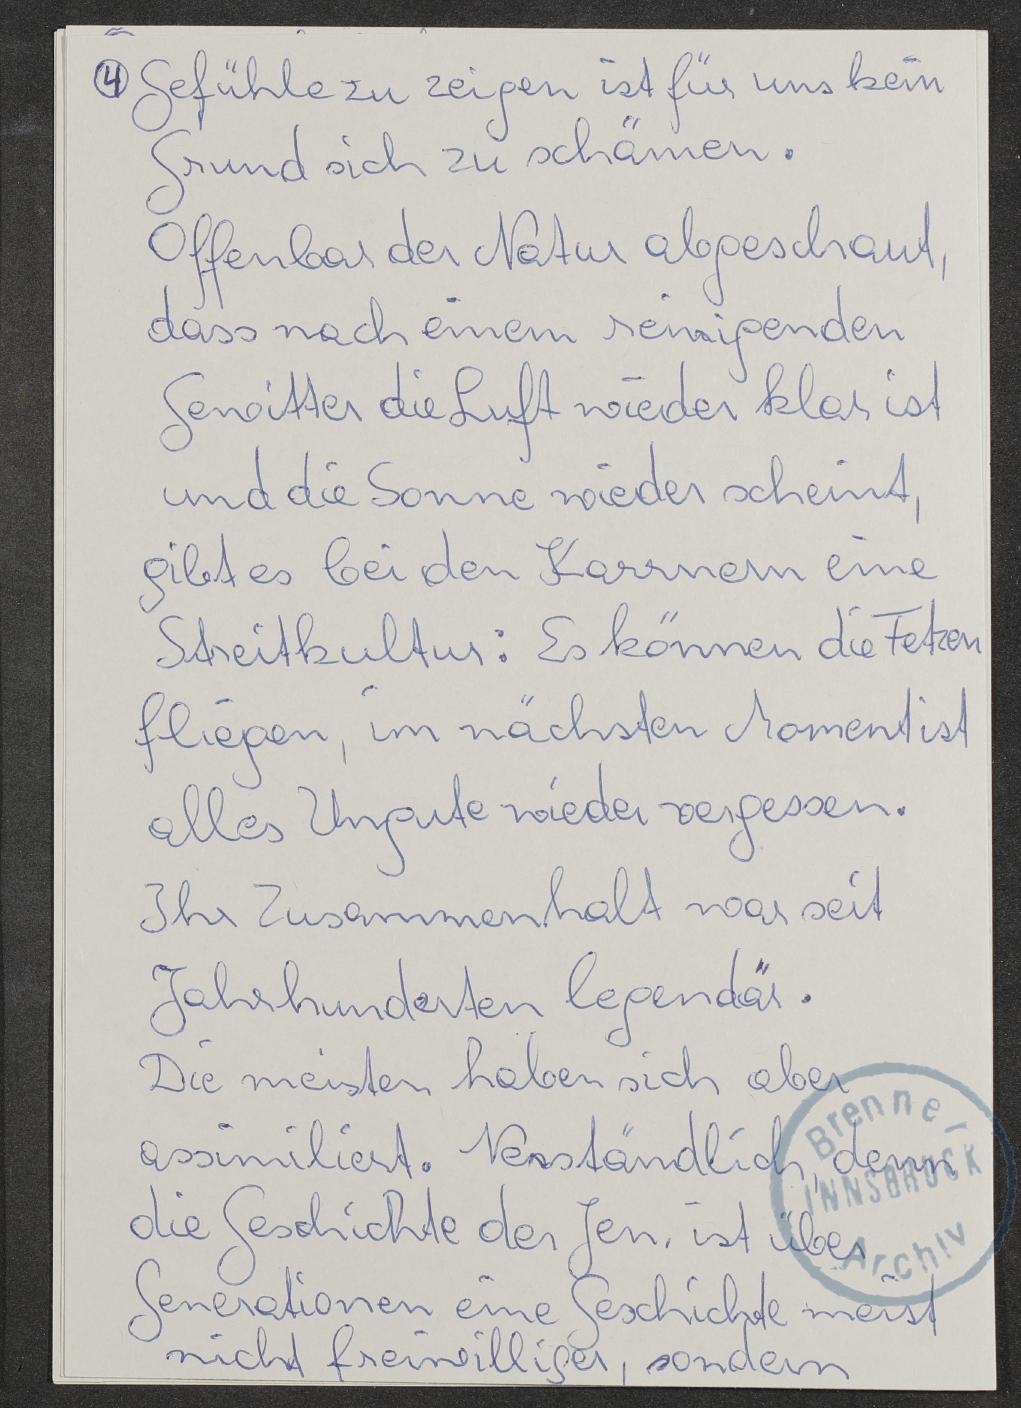 ④ Gefühle zu zeigen ist für uns kein
Grund sich zu schämen.
Offenbar der Natur abgeschaut,
dass nach einem reinigenden
Gewitter die Luft wieder klar ist
und die Sonne wieder scheint,
gibt es bei den Karrnern eine
Streitkultur: Es können die Fetzen
fliegen, im nächsten Moment ist
alles Ungute wieder vergessen.
Ihr Zusammenhalt war seit
Jahrhunderten legendär.
Die meisten haben sich aber
assimiliert. Verständlich, denn
die Geschichte der Jen. ist über
Generationen eine Geschichte meist
nicht freiwilliger, sondern
Brenner-
INNSBRUCK
Archiv